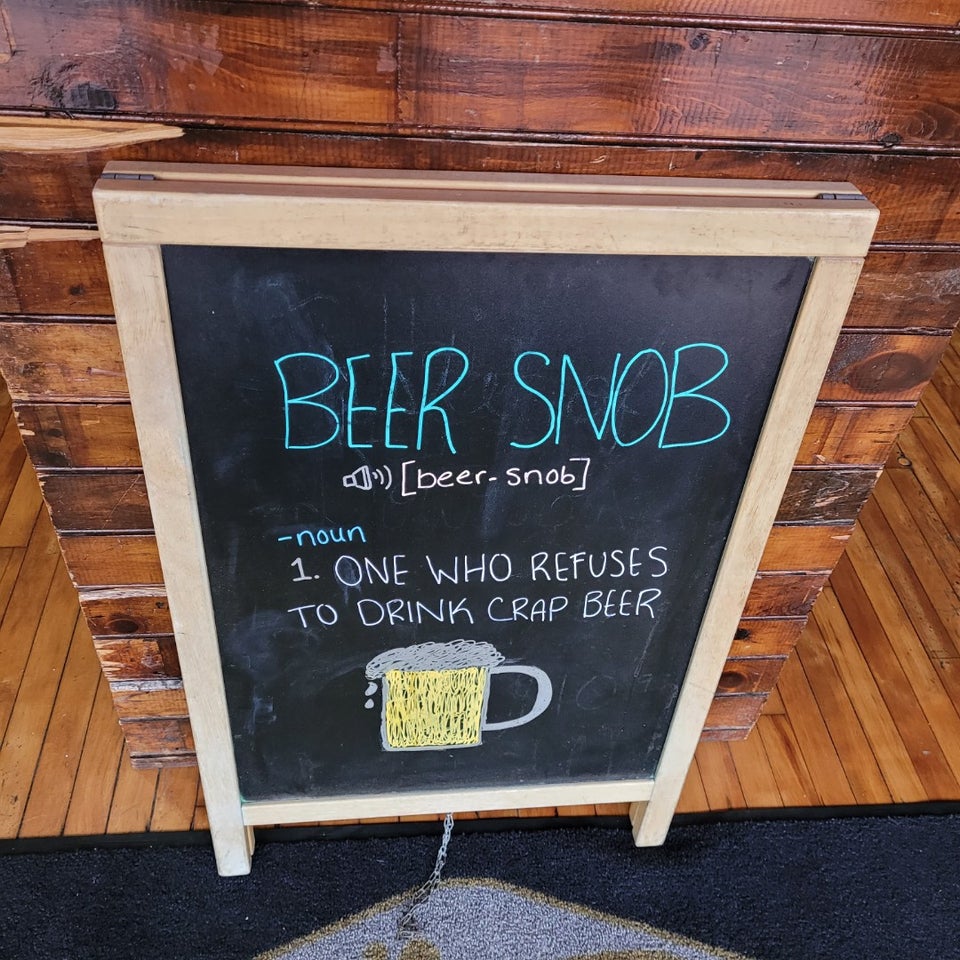 BEER SNOB
[beer-snob]
-noun
1. ONE WHO REFUSES
TO DRINK CRAP BEER